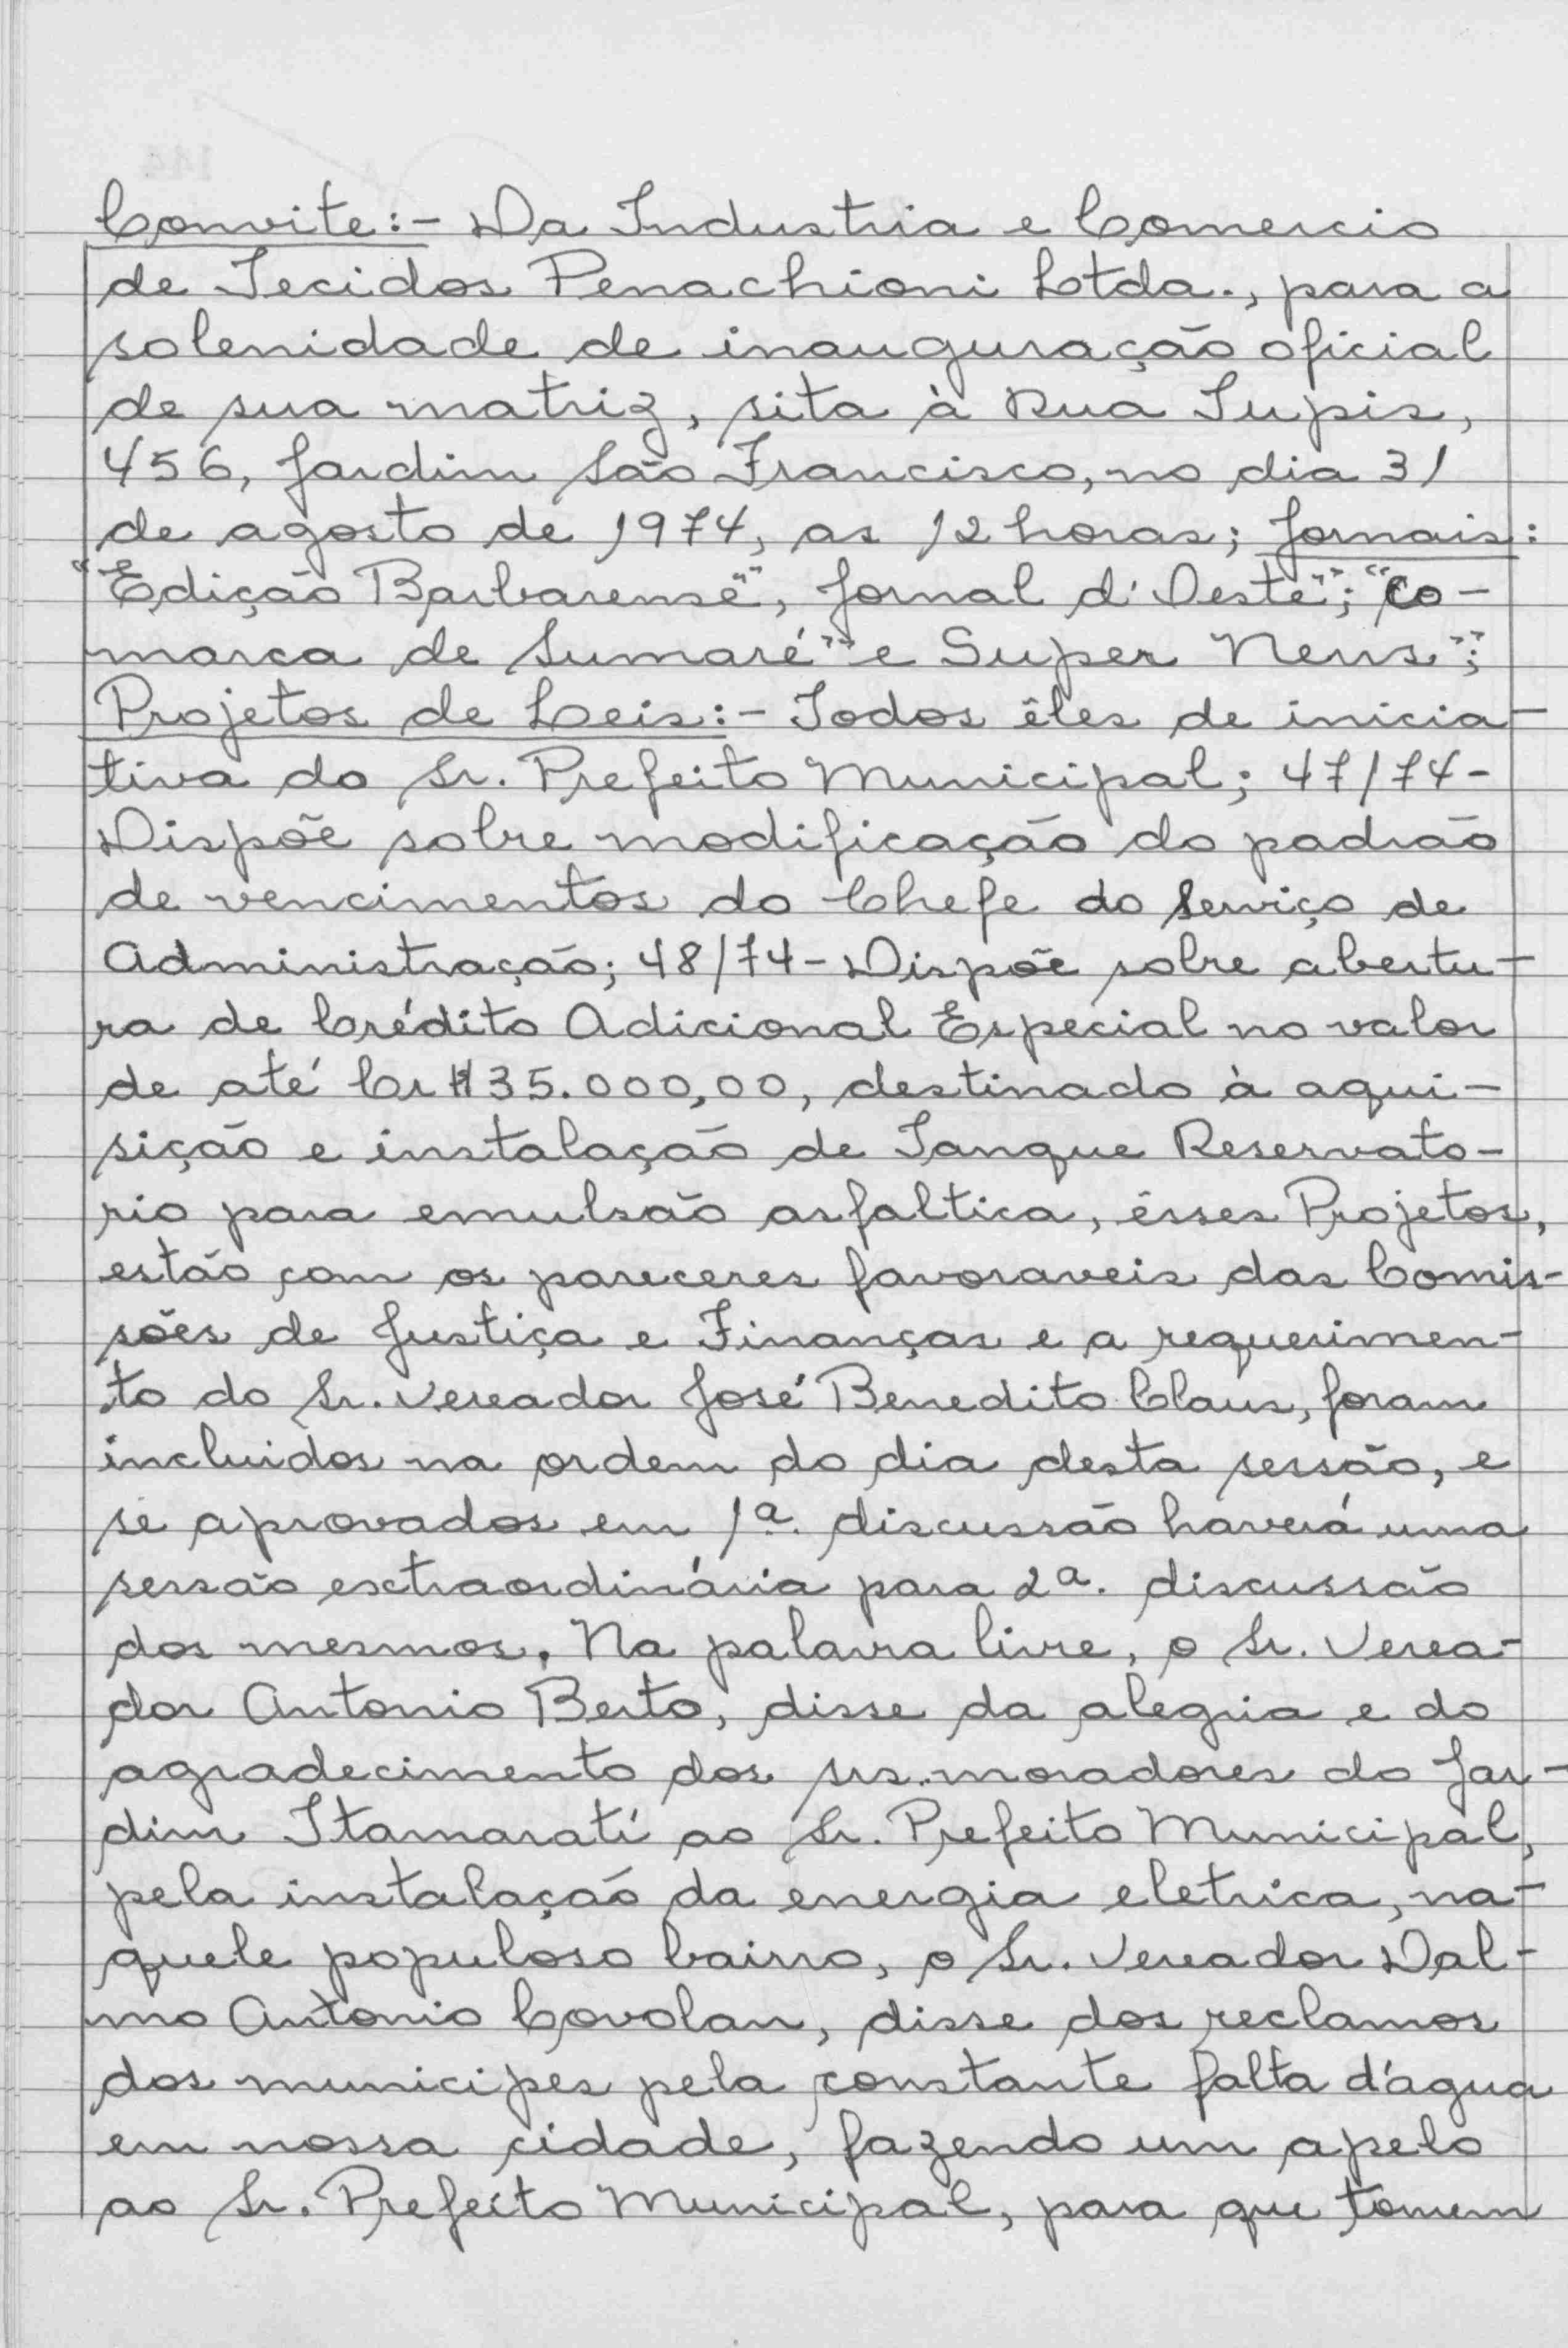 Convite:- Da Industria e Comercio
de Tecidos Penachioni Ltda., para a
solenidade de inauguração oficial
de sua matriz, sita à Rua Tupis,
456, Jardim São Francisco, no dia 31
de agosto de 1974, as 12 horas; Jornais:
"Edição Barbarense", Jornal d'Oeste"; "Co-
marca de Sumaré" e Super News";
Projetos de Leis:- Todos êles de inicia-
tiva do Sr. Prefeito Municipal; 47/74-
Dispõe sobre modificação do padrão
de vencimentos do Chefe do Serviço de
Administração; 48/74- Dispõe sobre abertu-
ra de Crédito Adicional Especial no valor
de até Cr$ 35.000,00, destinado à aqui-
sição e instalação de Tanque Reservato-
rio para emulsão asfaltica, êsses Projetos,
estão com os pareceres favoraveis das Comis-
sões de Justiça e Finanças e a requerimen-
to do Sr. Vereador José Benedito Claus, foram
incluidos na ordem do dia desta sessão, e
se aprovados em 1ª. discussão haverá uma
sessão extraordinária para 2ª. discussão
dos mesmos. Na palavra livre, o Sr. Verea-
dor Antonio Berto, disse da alegria e do
agradecimento dos srs. moradores do Jar-
dim Itamaratí ao Sr. Prefeito Municipal,
pela instalação da energia eletrica, na-
quele populoso bairro, o Sr. Vereador Dal-
mo Antonio Covolan, disse dos reclamos
dos municipes pela constante falta d'agua
em nossa cidade, fazendo um apelo
ao Sr. Prefeito Municipal, para que tomem